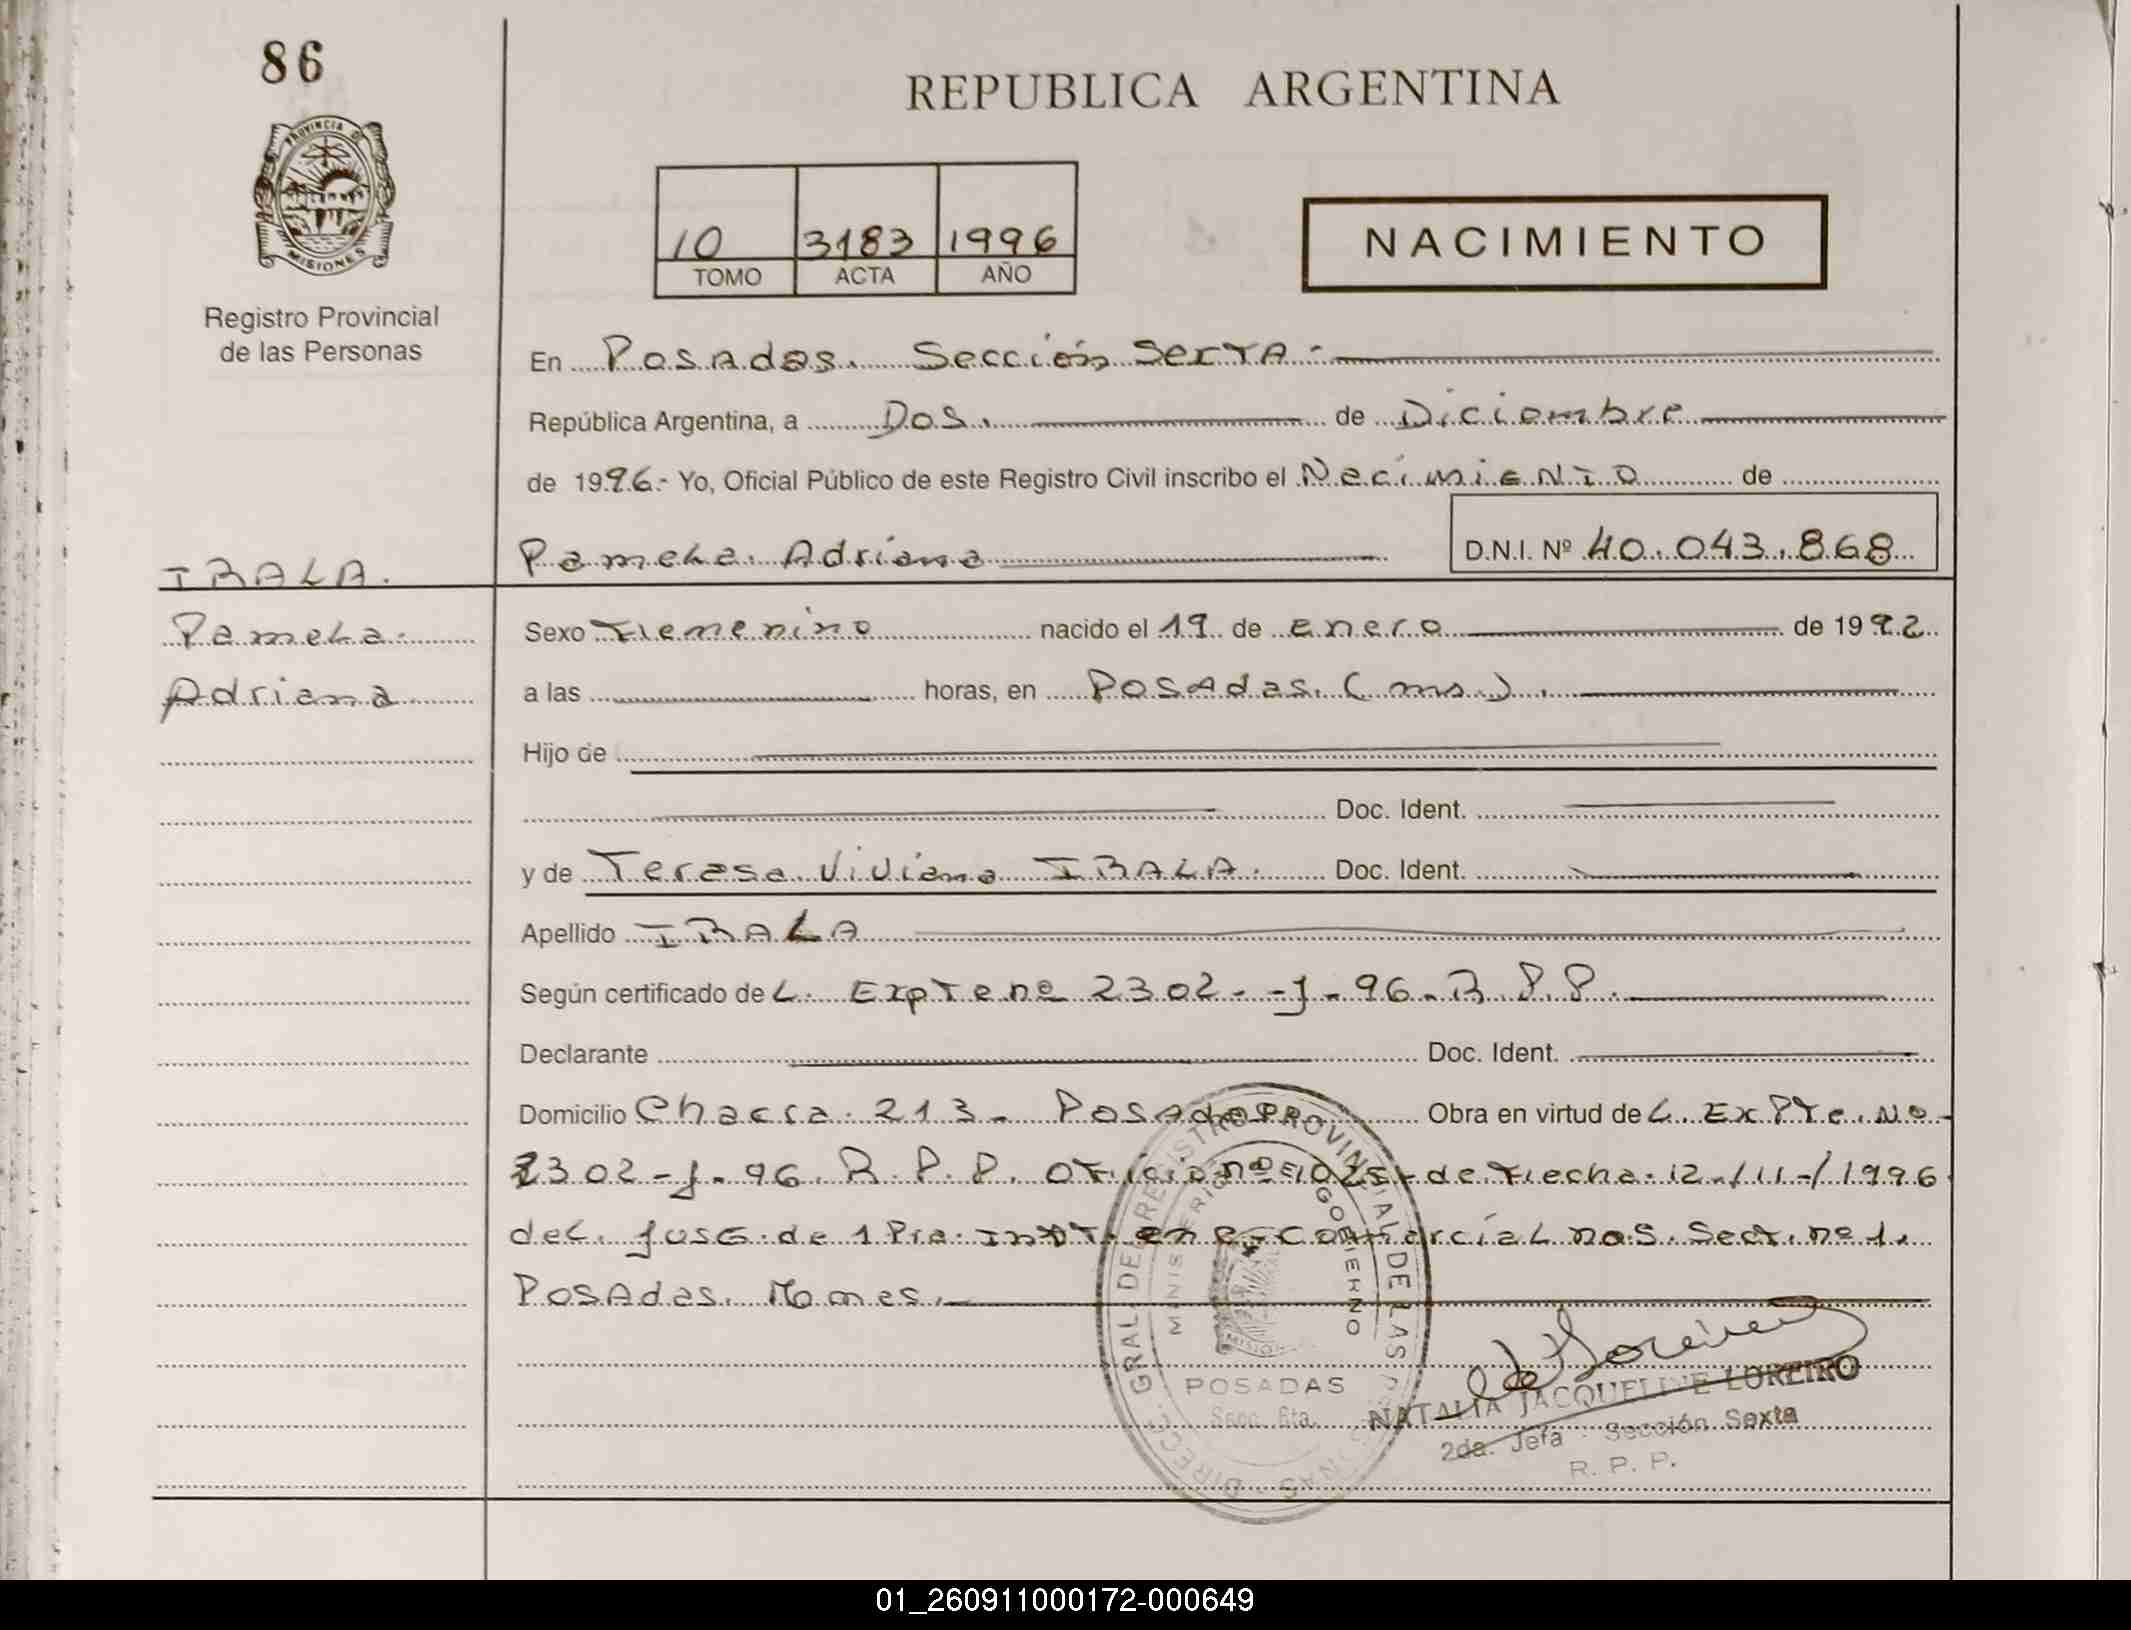 86
REPUBLICA ARGENTINA
PROVINCIA D
MISIONES
Registro Provincial
de las Personas
10 3183 1996
TOMO ACTA AÑO
NACIMIENTO
En Posadas. Sección Sexta.-
República Argentina, a Dos. de Diciembre
de 1996.- Yo, Oficial Público de este Registro Civil inscribo el Nacimiento de
Pamela Adriana D.N.I. Nº 40.043.868
IBALA.
Pamela
Adriana
Sexo Femenino nacido el 19 de enero de 1992
a las horas, en Posadas. (ms).
Hijo de
Doc. Ident.
y de Teresa Viviana IBALA. Doc. Ident.
Apellido IBALA
Según certificado de L. Expte nº 2302--J-96-R.P.P.
Declarante Doc. Ident.
Domicilio Chacra 213- Posadas Obra en virtud de L. Expte. Nº-
2302-J-96. R.P.P. Oficio nº 1025- de fecha 12-/11-/1996
del. Jusg. de 1 Pra. Inst. en Comercial no5. Secr. nº 1.
Posadas.
DIRECC. GRAL. DE REGISTRO PROVINCIAL DE LAS PERSONAS
MINISTERIO DE GOBIERNO
POSADAS
Secc. 6ta.
NATALIA JACQUELINE LOREIRO
2da. Jefa - Sección Sexta
R. P. P.
01_260911000172-000649